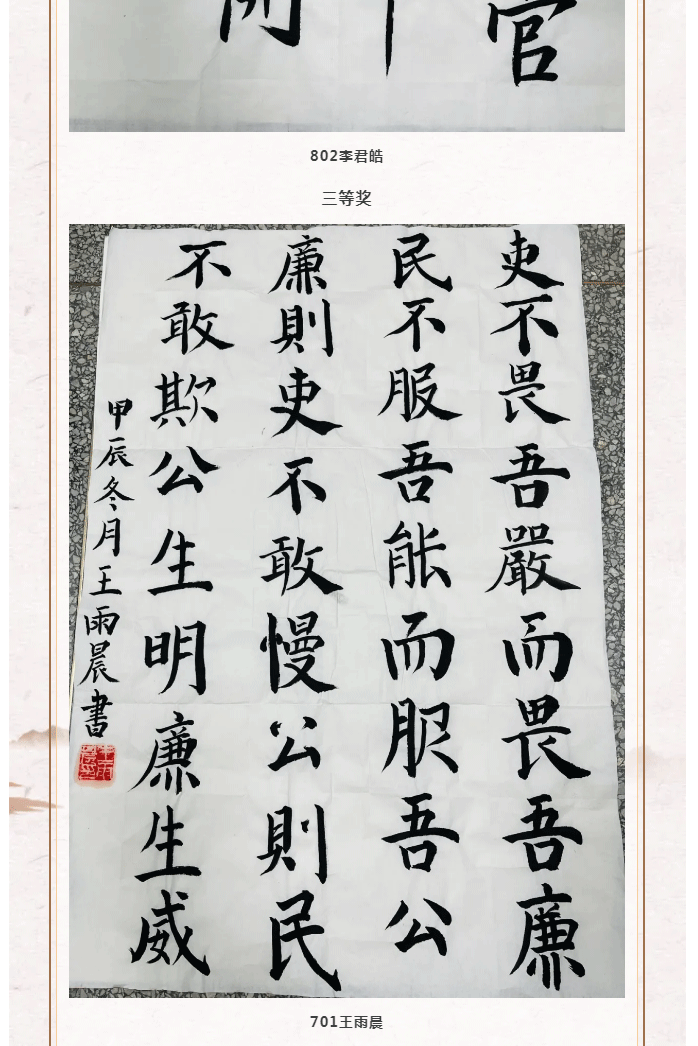 官
802李君皓
三等奖
吏不畏吾嚴而畏吾廉
民不服吾能而服吾公
廉則吏不敢慢公則民
不敢欺公生明廉生威
甲辰冬月王雨晨書
701王雨晨